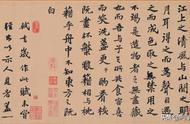 江上之清風與山間之明
月耳得之而為聲目遇之
而成色取之無禁用之
不竭是造物者之無盡藏
也而吾與子之所共食客喜
而笑洗盞更酌肴核
既盡杯盤狼藉相與枕
藉乎舟中不知東方既
白
軾去歲作此賦未嘗
輕出以示人見者蓋一